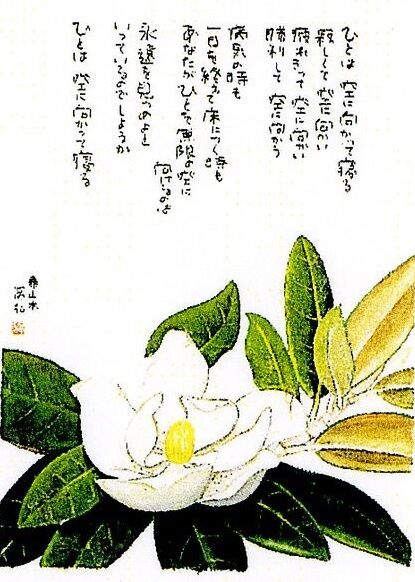 ひとは 空に向かって寝る
寂しくて 空に向かい
疲れきって 空に向かい
勝利して 空に向かう
病気の時も
一日を終えて床につく時も
あなたがひとを無限の空に
向けるのは
永遠を見つめよと
いっているのでしょうか
ひとは 空に向かって寝る
泰山木
富弘